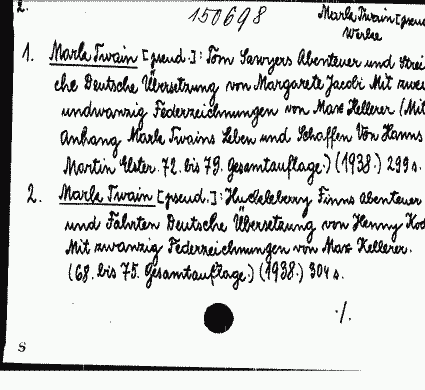 2.
150698
Mark Twain [pseud
Werke
1. Mark Twain [pseud.]: Tom Sawyers Abenteuer und Strei
che Deutsche Übersetzung von Margarete Jacobi Mit zwei
undwanzig Federzeichnungen von Max Kellerer (Mit
Anhang Mark Twains Leben und Schaffen Von Hanns
Martin Elster. 72. bis 79. Gesamtauflage.) (1938.) 299 s.
2. Mark Twain [pseud.]: Huckleberry Finns Abenteuer
und Fahrten Deutsche Übersetzung von Henny Koch
Mit zwanzig Federzeichnungen von Max Kellerer.
(68. bis 75. Gesamtauflage.) (1938.) 304 s.
./.
S